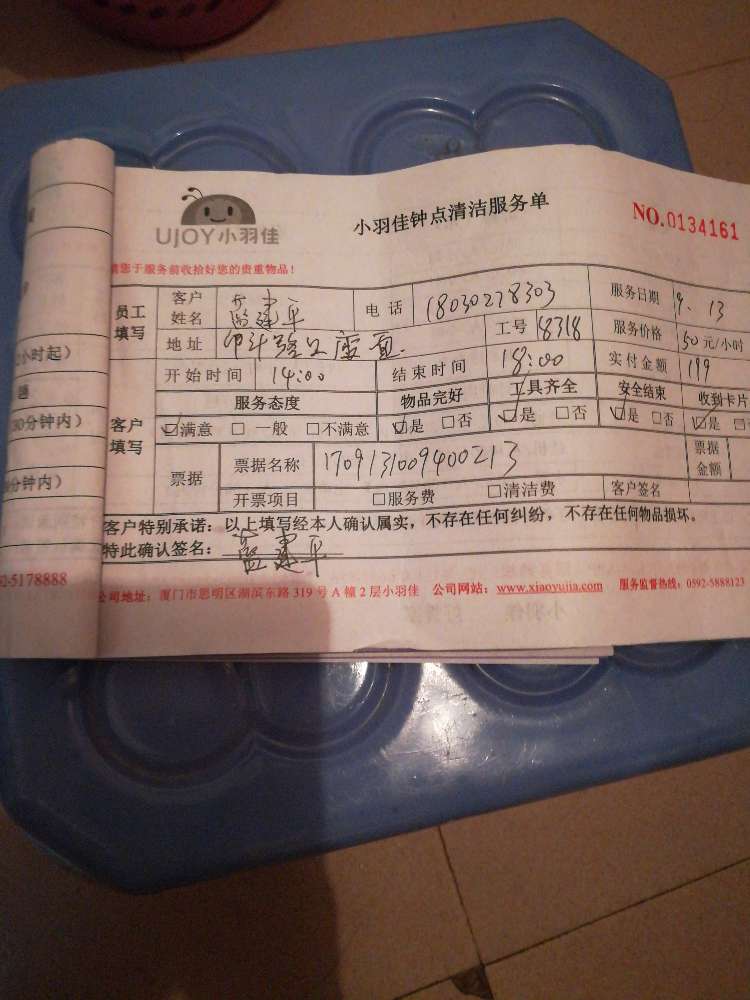 UJOY小羽佳
小羽佳钟点清洁服务单
NO.0134161
请您于服务前收拾好您的贵重物品！
员工填写 客户姓名 蓝建平 电话 18030278303 服务日期 9.13
地址 工号 8318 服务价格 50元/小时
客户填写 开始时间 14:00 结束时间 18:00 实付金额 199
服务态度 物品完好 工具齐全 安全结束 收到卡片
☑满意 □一般 □不满意 ☑是 □否 ☑是 □否 ☑是 □否 ☑是
票据 票据名称 1709131009400213 票据金额
开票项目 □服务费 □清洁费 客户签名
客户特别承诺：以上填写经本人确认属实，不存在任何纠纷，不存在任何物品损坏。
特此确认签名： 蓝建平
公司地址：厦门市思明区湖滨东路319号A幢2层小羽佳 公司网站：www.xiaoyujia.com 服务监督热线：0592-5888123
小时起）
题
30分钟内）
分钟内）
92-5178888